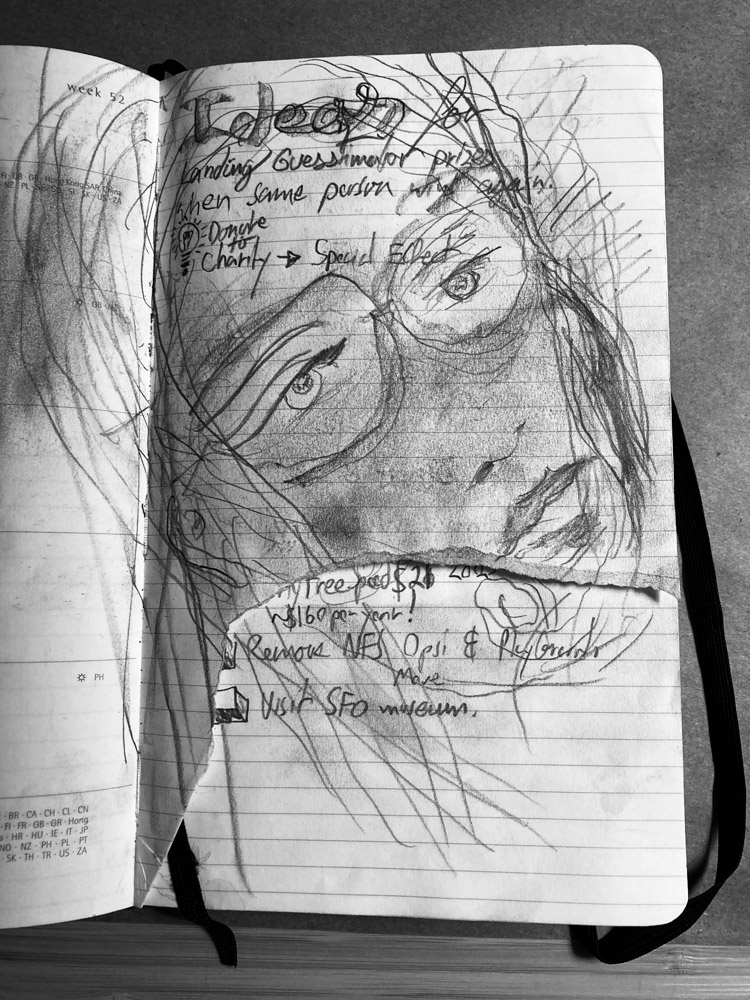 week 52
FI · GB · GR · Hong Kong SAR, China
NZ · PL
SI · SK · US · ZA
GB
PH
BR · CA · CH · CL · CN
FI · FR · GB · GR · Hong
HR · HU · IE · IT · JP
NO · NZ · PH · PL · PT
SK · TH · TR · US · ZA
Ideas for
Landing Guesstimator prizes
when same person wins again.
Donate
to
Charity → Special Effect
Free $26
~$160 per year!
Remove NFS Ops1 &
More
Visit SFO museum.